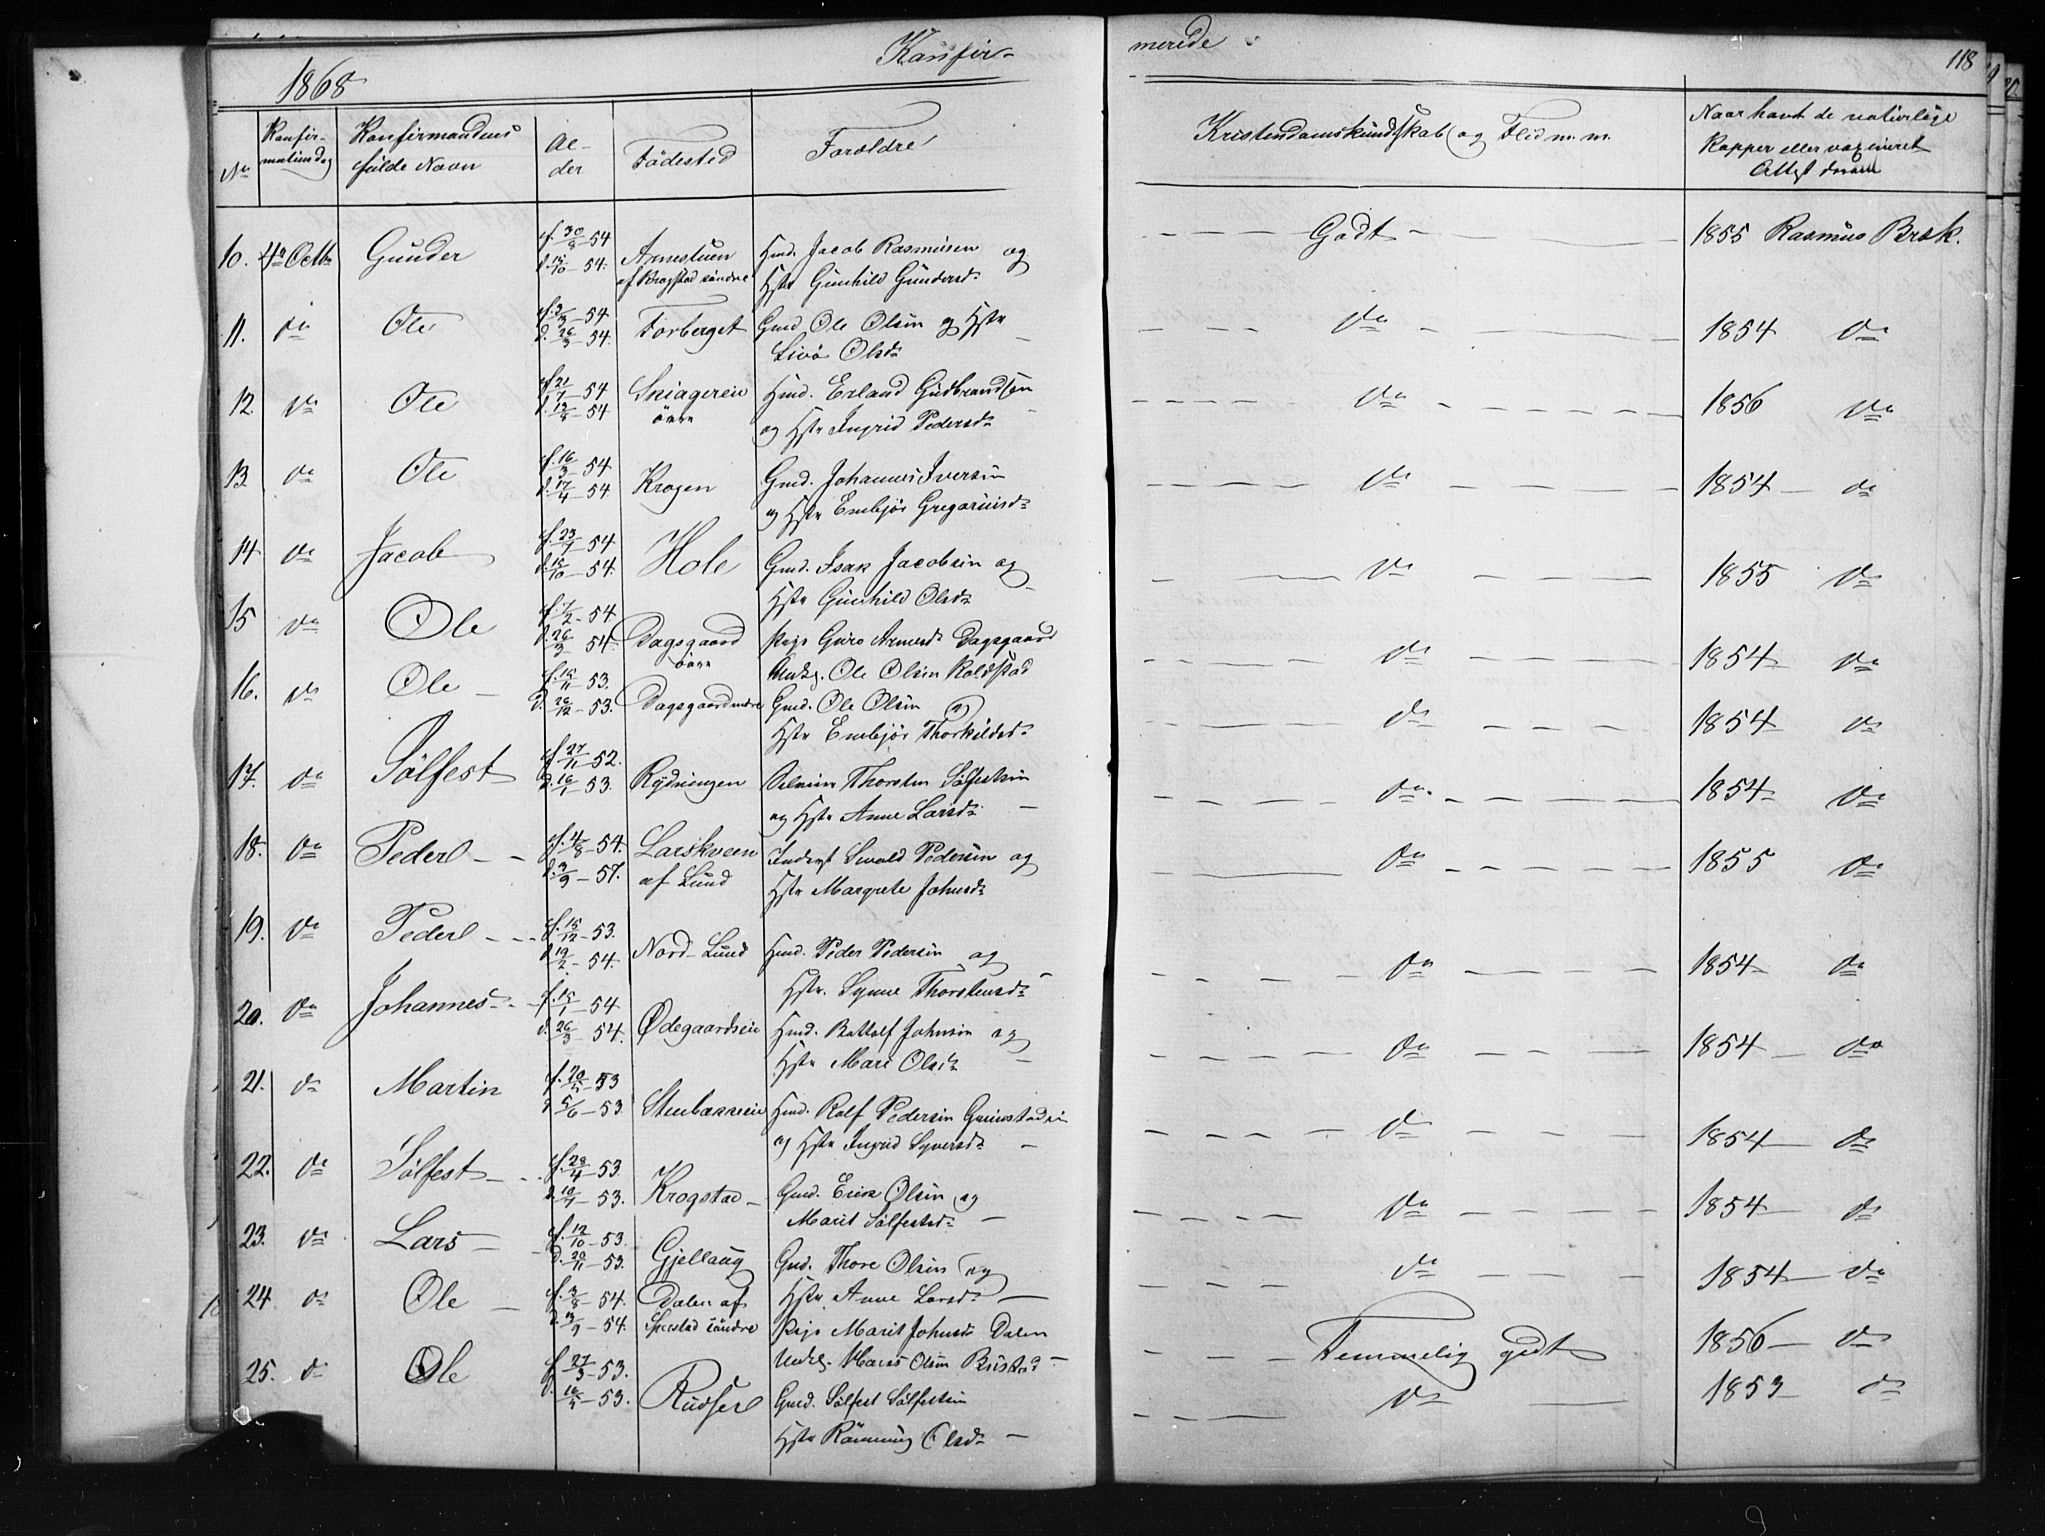 1868
Konfir-
merede
118
No
Konfir-
mations dag
Konfirmandens
fulde Navn
Al-
der
Födested
Forældre
Kristendomskundskab og Flid m. m.
Naar havt de naturlige
Kopper eller vaxineret
Attest derom
10. 4de Octbr Gunder f. 30/8 54 d. 15/10 54. Arnestuen Hmd. Jacob Rasmusen og
af Brogstad söndre Hstr Gunhild Gundersdr
Godt 1855 Rasmus Brek.
11. do Ole f. 3/3 54 d. 26/3 54. Forberget Gmd Ole Olsen og Hstr
Olsdr
do 1854 do
12. do Ole f. 21/7 54 d. 13/8 54 övre Hmd. Erland Gudbrandsen
og Hstr Ingrid Pedersdr
do 1856 do
13. do Ole f. 16/3 54 d. 17/4 54 Krogen Gmd. Johannes Iversen
og Hstr Embjör Gregoriusdr
do 1854 do
14 do Jacob f. 23/9 54 d. 15/10 54. Hole Gmd. Isak Jacobsen og
Hstr Gunhild Olsdr
do 1855 do
15 do Ole f. 7/2 54 d. 26/3 54. Dagsgaard Pige Guro Arnesdr Dagsgaard
övre Ungk. Ole Olsen Koldstad
do 1854 do
16. do Ole f. 15/11 53. d. 26/12 53. Dagsgaard Gmd. Ole Olsen og
Hstr Embjör Thorkildsdr
do 1854 do
17. do Sölfest f. 27/11 52. d. 16/1 53. Rydningen Thorsten Sölfestsen
og Hstr Anne Larsdr
do 1854 do
18. do Peder f. 4/8 54. d. 3/9 54. Larskveen Inderst Sivald Pedersen og
af Lund Hstr Margrete Johnsdr
do 1855 do
19. do Peder f. 15/12 53. d. 19/2 54. Nord-Lund Hmd. Peder Pedersen og
Hstr. Synne Thorstensdr
do 1854 do
20. do Johannes f. 15/1 54 d. 26/3 54. Ødegaardseie Hmd. Bottolf Johnsen og
Hstr Mari Olsdr
do 1854 do
21. do Martin 53 53 Stenbakkeeie Hmd. Rolf Pedersen
og Hstr Ingrid Syversdr
do 1854 do
22. do Sölfest f. 28/4 53. 53. Krogstad Gmd. Erik Olsen og
Marit Sölfestsdr
do 1854 do
23. do Lars f. 12/10 53. d. 20/11 53. Gjellaug Gmd. Thore Olsen og
Hstr Anne Larsdr
do 1854 do
24. do Ole f. 3/8 54. d. 3/9 54. Dalen af Pige Marit Johnsdr Dalen
söndre Ungk. Hans Olsen Bustad
Temmelig godt 1856 do
25. do Ole f. 27/3 53. d. 16/5 53. Rudser Gmd. Sölfest Sölfestsen
Hstr Rönnaug Olsdr
do 1853 do